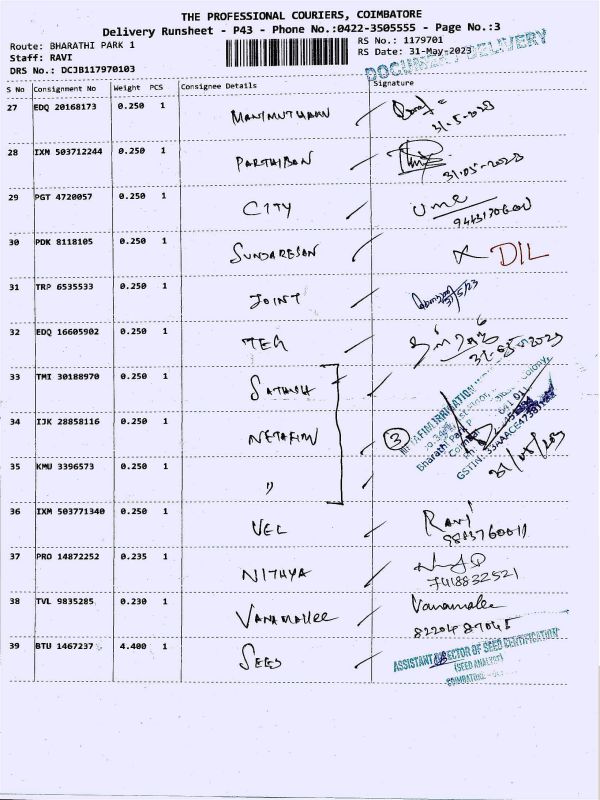 THE PROFESSIONAL COURIERS, COIMBATORE
Delivery Runsheet - P43 - Phone No.:0422-3505555 - Page No.:3
Route: BHARATHI PARK 1
RS No.: 1179701
Staff: RAVI
RS Date: 31-May-2023
DRS No.: DCJB117970103
DOCUMENT DELIVERY
S No Consignment No Weight PCS Consignee Details Signature
27 EDQ 20168173 0.250 1
31-5-2023
28 IXM 503712244 0.250 1 PARTHIBAN
31-05-2023
29 PGT 4720057 0.250 1 CITY
30 PDK 8118105 0.250 1 SUNDARESAN DIL
31 TRP 6535533 0.250 1 JOINT
31/5/23
32 EDQ 16605902 0.250 1
31-05-2023
33 TMI 30188970 0.250 1 SATHISH
34 IJK 28858116 0.250 1 NETAFIM 3
Bharathi Park
641 011
35 KMU 3396573 0.250 1 "
31/05/2023
36 IXM 503771340 0.250 1 VEL Ravi
37 PRO 14872252 0.235 1 NITHYA
7418832521
38 TVL 9835285 0.230 1 VANAMALLEE Vanamalee
82204 87045
39 BTU 1467237 4.400 1 SEED
ASSISTANT DIRECTOR OF SEED CERTIFICATION
(SEED ANALYST)
COIMBATORE